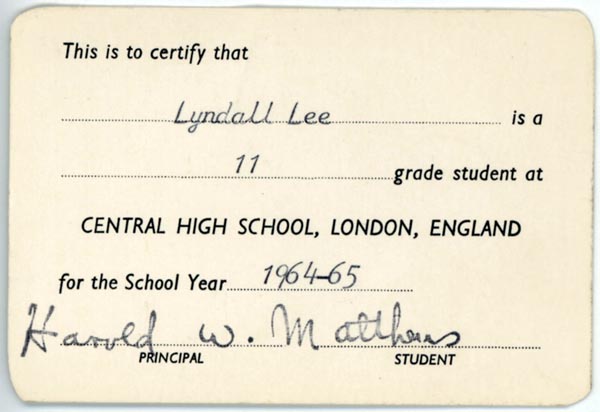 This is to certify that
Lyndall Lee is a
11 grade student at
CENTRAL HIGH SCHOOL, LONDON, ENGLAND
for the School Year 1964-65
Harold W. Matthews
PRINCIPAL STUDENT